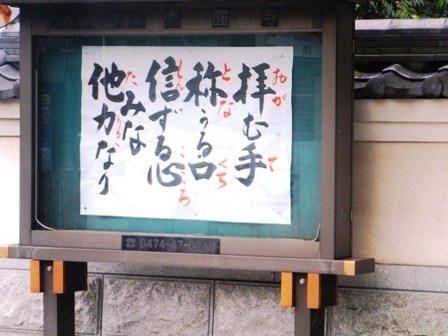 拝む手
おが て
称うる口
とな くち
信ずる心
しん こころ
たみな
他力なり
た りき
☎ 0474-47-02